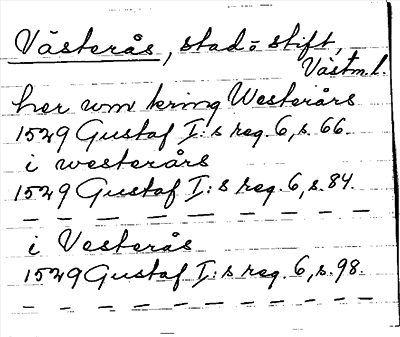 Västerås, stad o stift,
Västm. l.
her um kring Westerårs
1529 Gustaf I:s reg. 6, s. 66.
i westerårs
1529 Gustaf I:s reg. 6, s. 84.
i Vesterås
1529 Gustaf I:s reg. 6, s. 98.